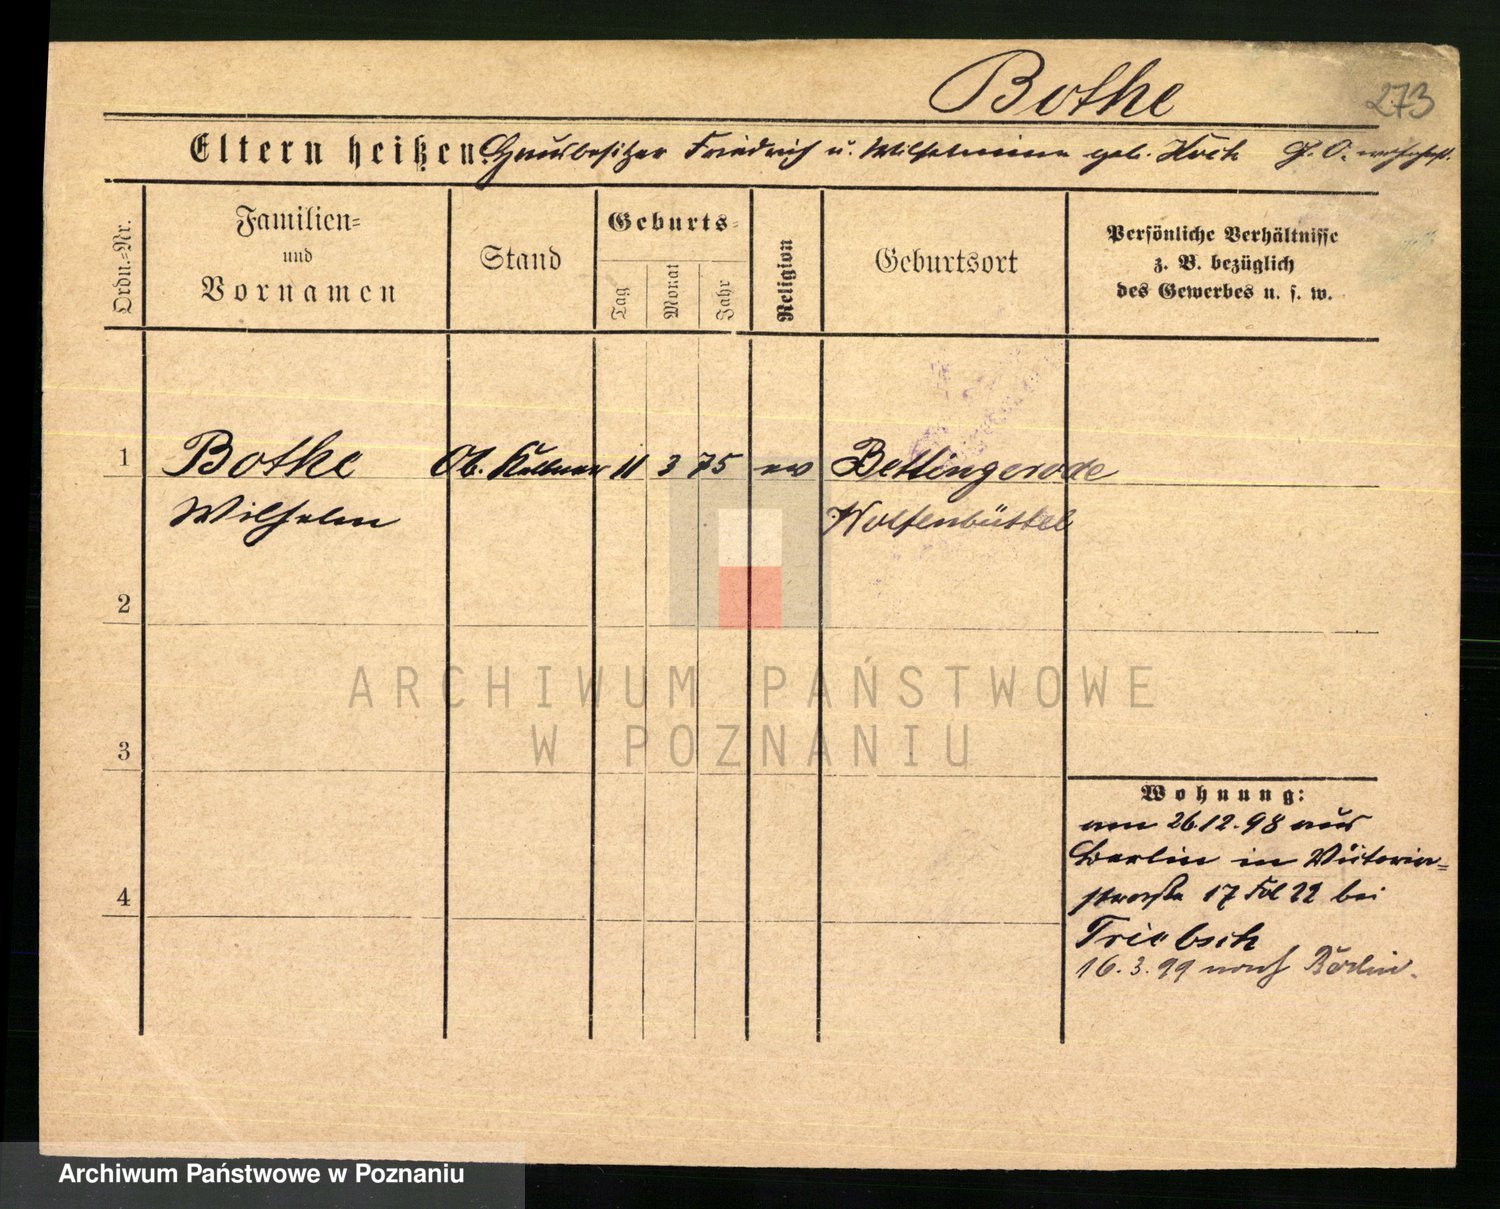 Bothe 273
Eltern heißen: Hausbesitzer Friedrich u. Wilhelmine geb. Koch G. O. wohnhaft.
Ordn.-Nr.
Familien-
und
Vornamen
Stand
Geburts-
Tag
Monat
Jahr
Religion
Geburtsort
Persönliche Verhältnisse
z. B. bezüglich
des Gewerbes u. s. w.
1 Bothe Ob. Kellner 11 3 75 ev Bettingerode
Wilhelm Wolfenbüttel
2
ARCHIWUM PAŃSTWOWE
W POZNANIU
3
Wohnung:
am 26.12.98 aus
Berlin in Victoria-
strasse 17 bei
4
Triebsch
16.3.99 nach Berlin.
Archiwum Państwowe w Poznaniu